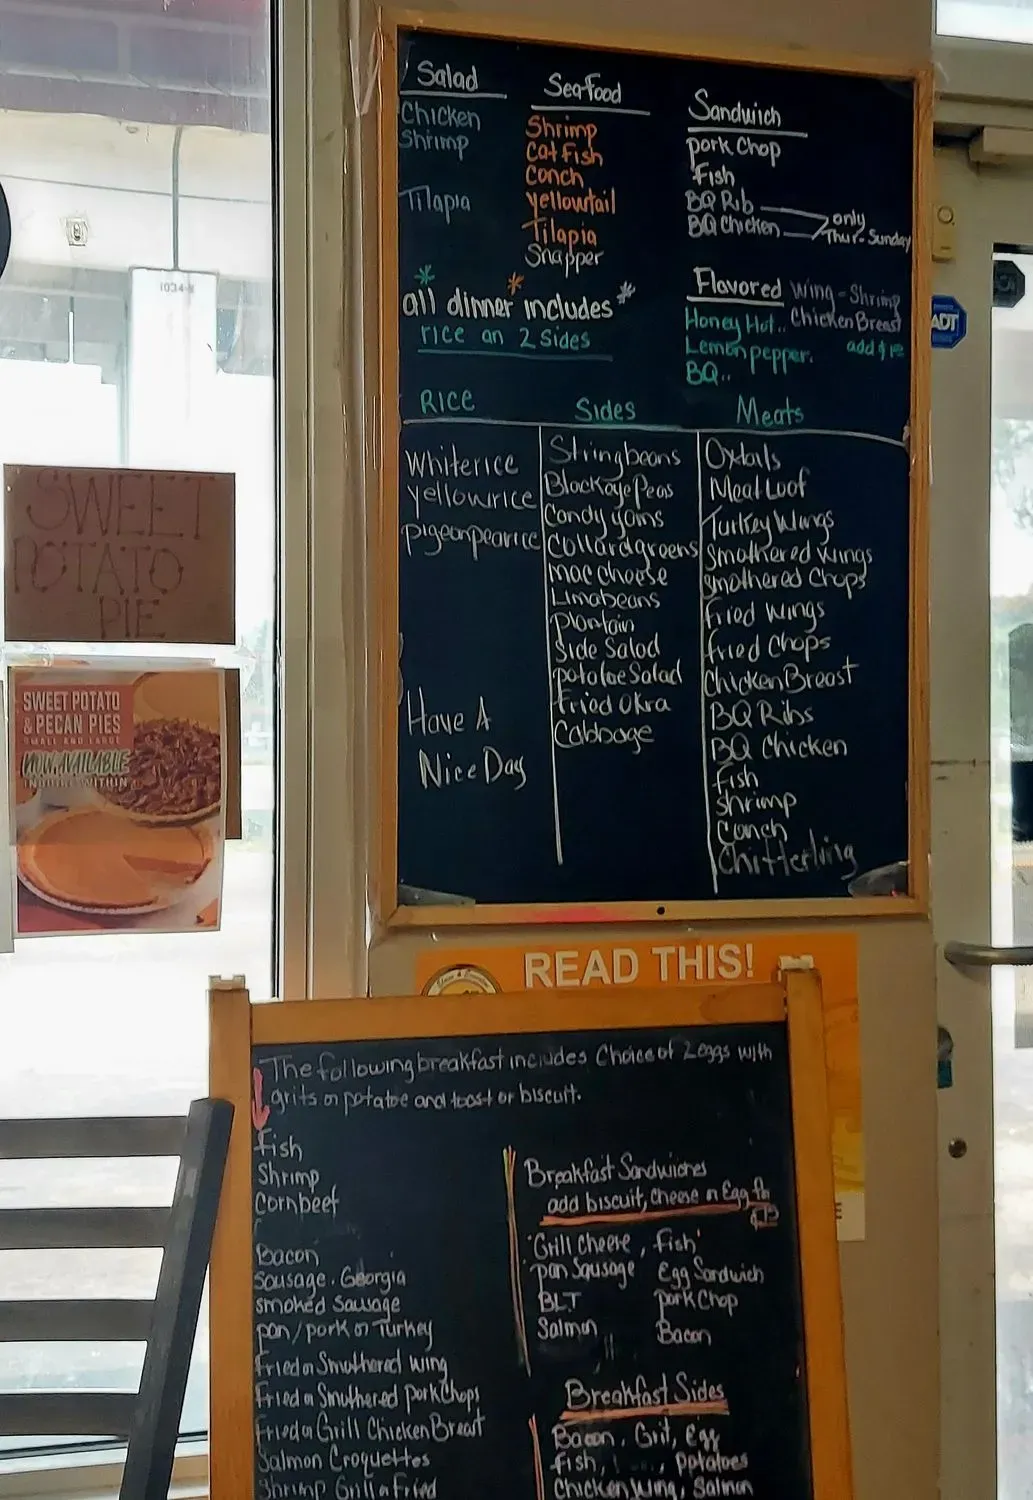 Salad
Chicken
Shrimp
Tilapia
Seafood
Shrimp
Catfish
Conch
yellowtail
Tilapia
Snapper
Sandwich
pork Chop
Fish
BQ Rib
BQ Chicken
only
Thur-Sunday
*all dinner* includes*
rice an 2 Sides
Flavored Wing - Shrimp
Honey Hot.. Chicken Breast
Lemon pepper. add $1.00
BQ..
Rice
White rice
yellow rice
pigeonpea rice
Have A
Nice Day
Sides
Stringbeans
Blackeye Peas
Candy yams
Collardgreens
mac cheese
Limabeans
plantain
Side Salad
potatoe Salad
Fried Okra
Cabbage
Meats
Oxtails
Meat Loof
Turkey Wings
Smothered Wings
smothered Chops
fried Wings
fried Chops
Chicken Breast
BQ Ribs
BQ Chicken
fish
shrimp
Conch
Chitterling
1034-B
ADT
SWEET
POTATO
PIE
SWEET POTATO
& PECAN PIES
SMALL AND LARGE
NOW AVAILABLE
INQUIRE WITHIN
READ THIS!
The following breakfast includes Choice of 2 eggs with
grits or potatoe and toast or biscuit.
Fish
Shrimp
Cornbeef
Bacon
Sausage. Georgia
smoked Sausage
pan/pork or Turkey
Fried or Smothered wing
Fried or Smothered pork Chops
Fried or Grill Chicken Breast
Salmon Croquettes
Shrimp Grill or Fried
Breakfast Sandwiches
add biscuit, cheese or Egg for
Grill Cheese, Fish
pan Sausage Egg Sandwich
BLT pork Chop
Salmon Bacon
Breakfast Sides
Bacon, Grit, Egg
fish, potatoes
Chicken Wing, Salmon